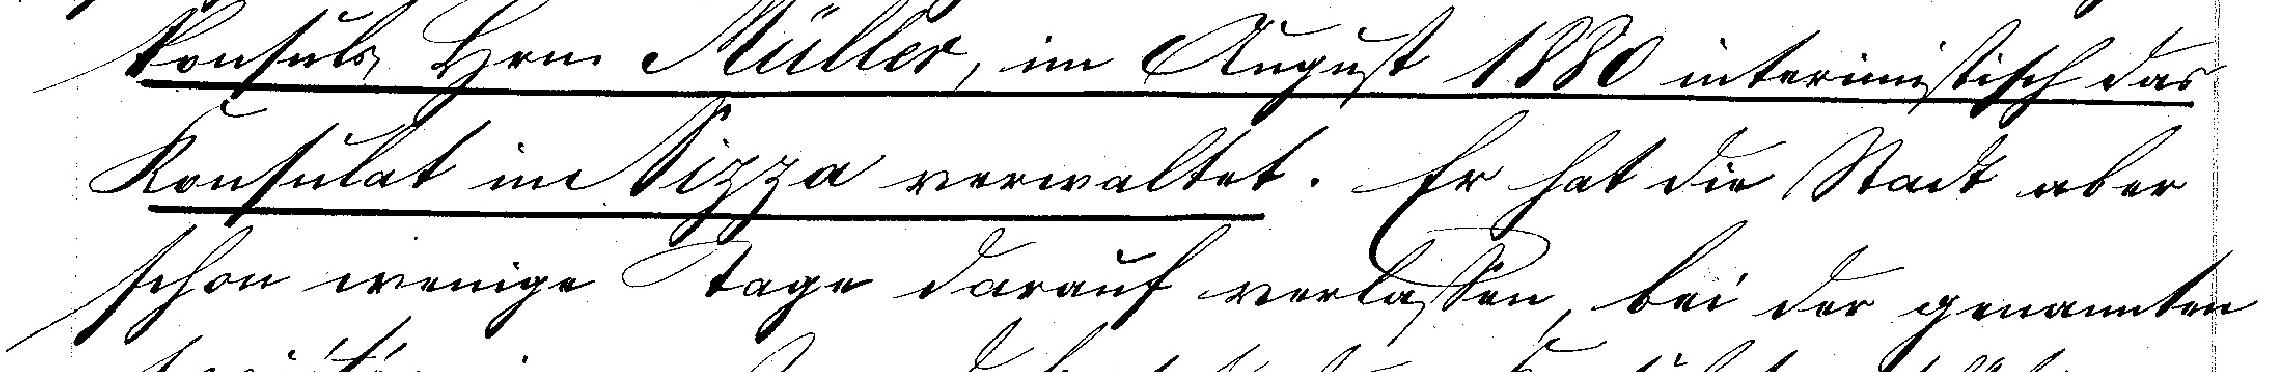 Konsuls, Hrn. Müller, im August 1880 interimistisch das
Konsulat in Nizza verwaltet. Er hat die Stadt aber
schon wenige Tage darauf verlassen, bei der genannten